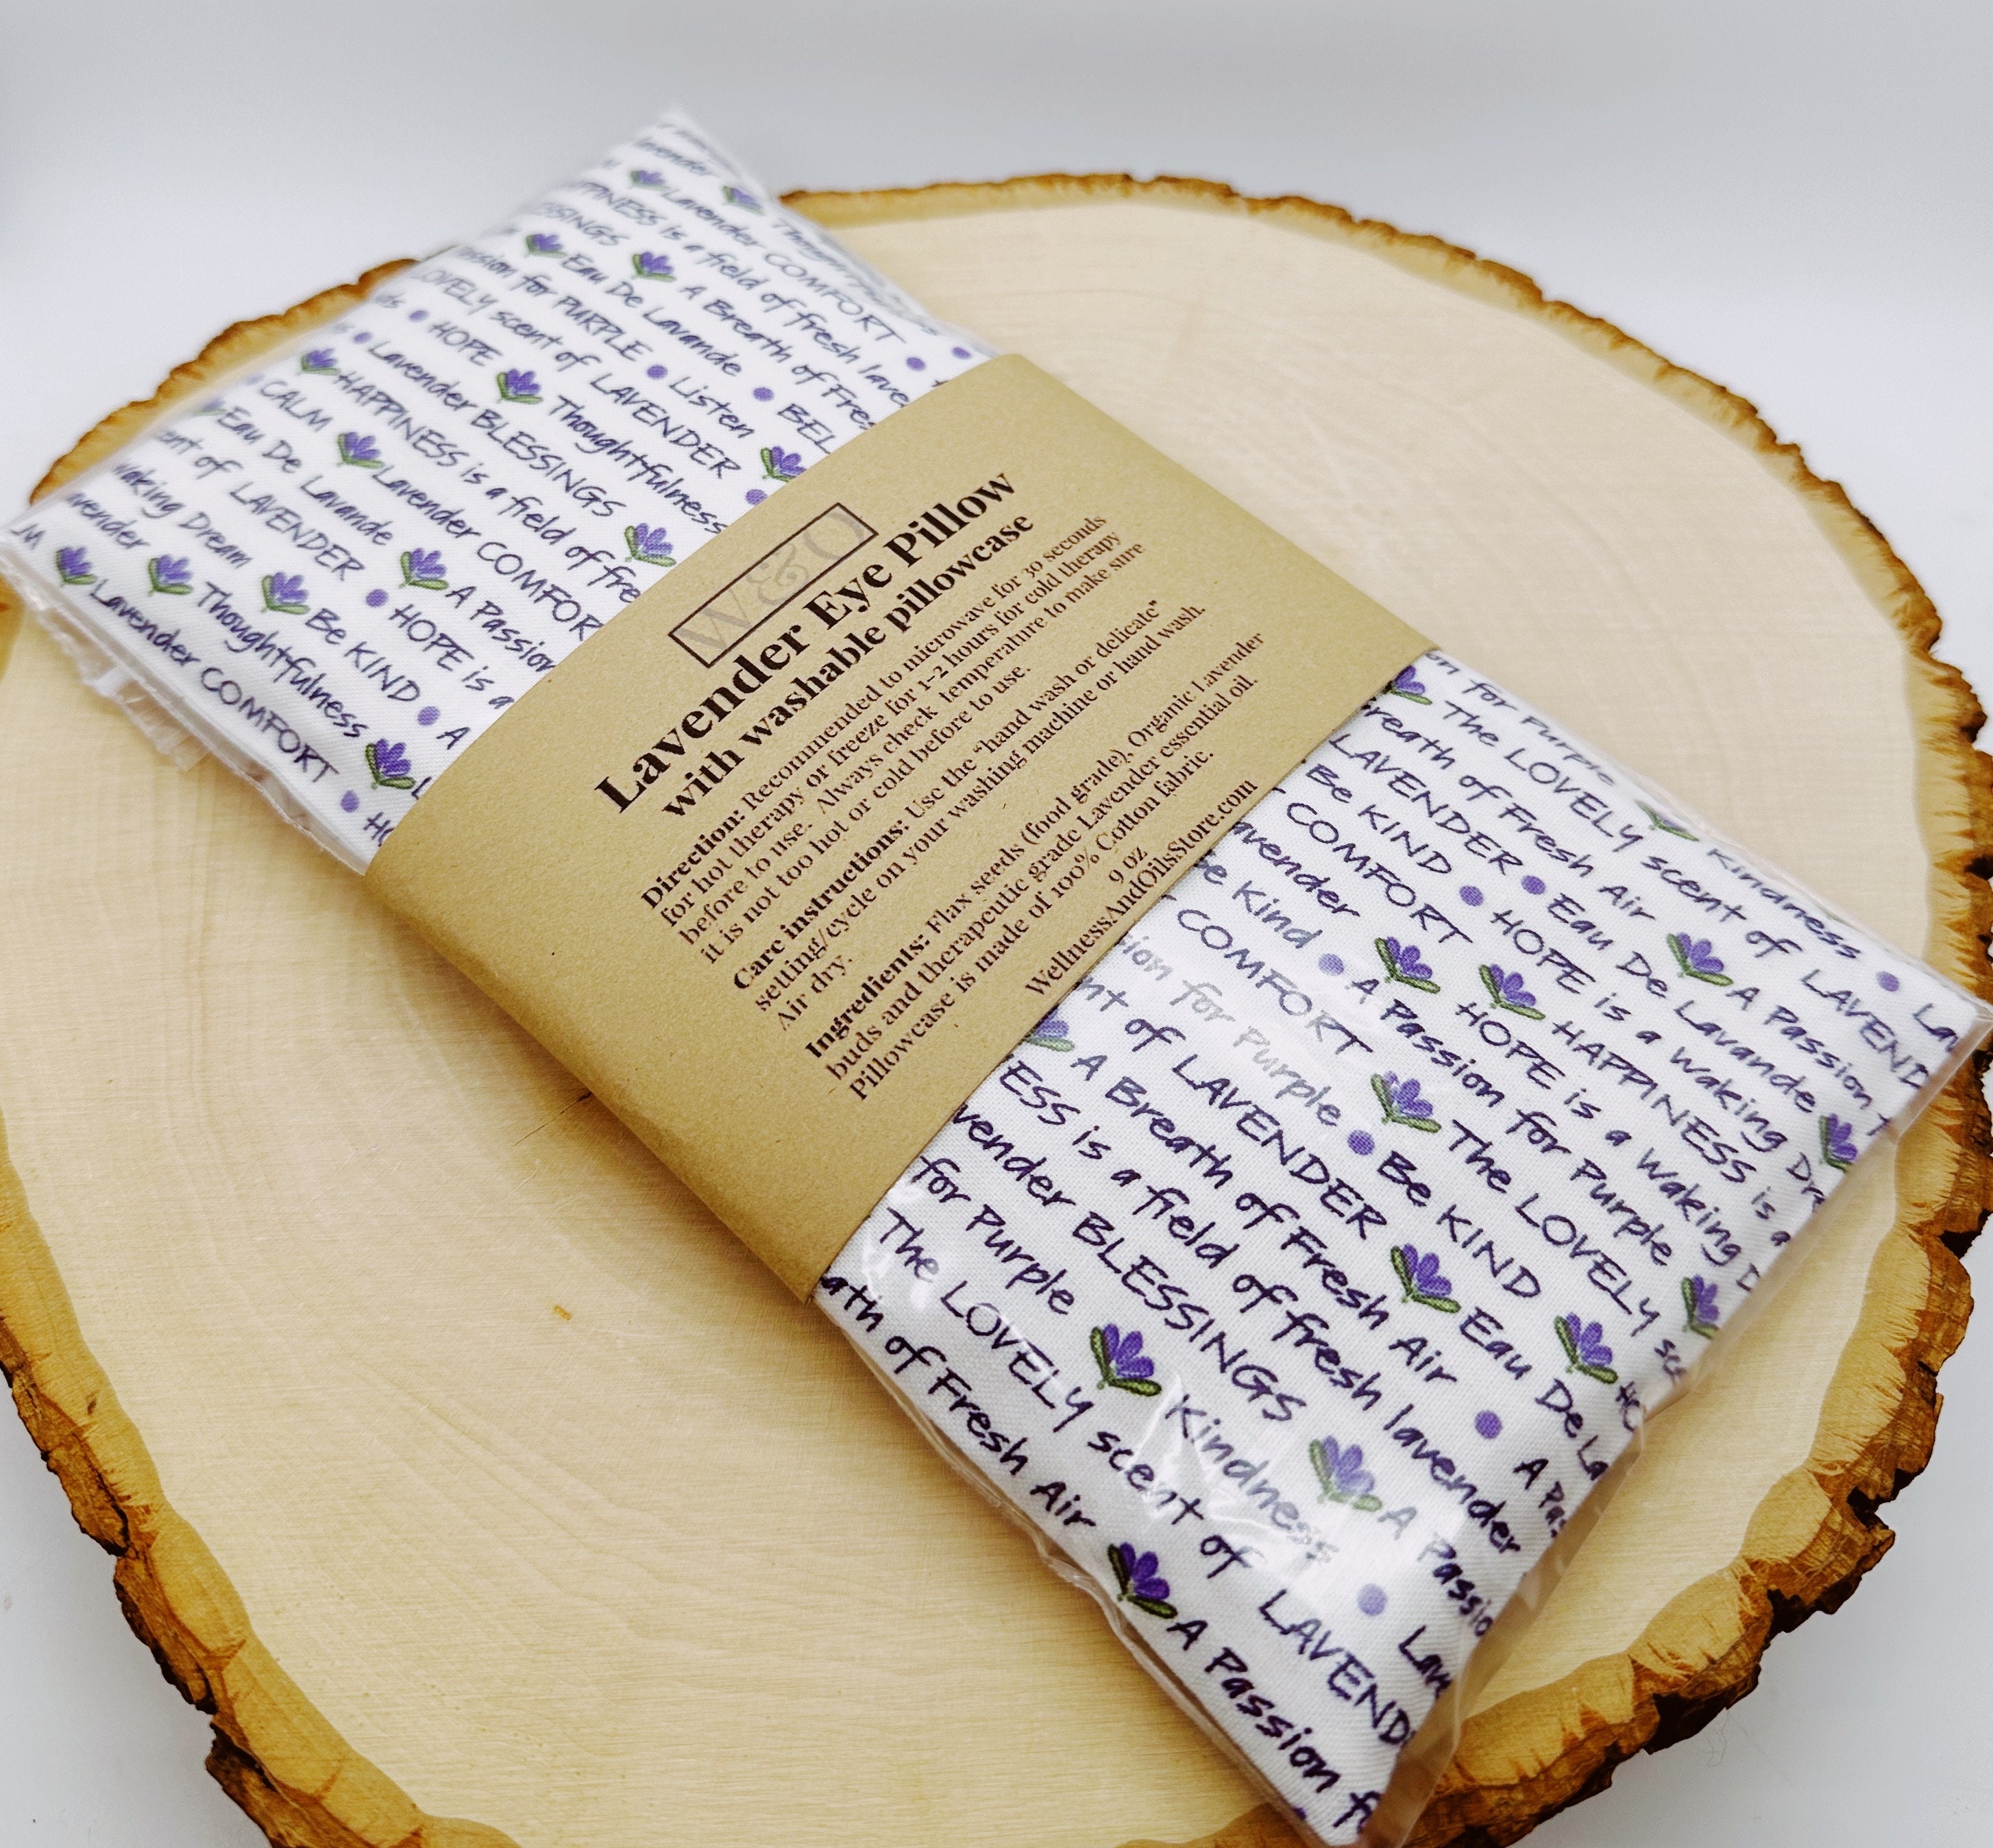 W&O
Lavender Eye Pillow
with washable pillowcase
Direction: Recommended to microwave for 30 seconds
for hot therapy or freeze for 1-2 hours for cold therapy
before to use. Always check temperature to make sure
it is not too hot or cold before to use.
Care instructions: Use the "hand wash or delicate"
setting/cycle on your washing machine or hand wash.
Air dry.
Ingredients: Flax seeds (food grade), Organic Lavender
buds and therapeutic grade Lavender essential oil.
Pillowcase is made of 100% Cotton fabric.
9 oz
WellnessAndOilsStore.com
Lavender COMFORT
HAPPINESS is a field of fresh
Eau De Lavande A Breath of
for PURPLE Listen
LOVELY scent of LAVENDER
HOPE Thoughtfulness
Lavender BLESSINGS
HAPPINESS is a field of
CALM Lavender
Eau De Lavande A Passion
of LAVENDER HOPE is a
Dream Be KIND A
Thoughtfulness
Lavender COMFORT
for Purple Kindness
The LOVELY scent of
of Fresh Air A Passion
LAVENDER Eau De Lavande
Be KIND HOPE is a Waking
COMFORT HAPPINESS is a
HOPE is a Waking
Kind A Passion for Purple
COMFORT The LOVELY
for Purple Be KIND
of LAVENDER Eau De
A Breath of Fresh Air A
is a field of fresh lavender
BLESSINGS A
for Purple Kindness
The LOVELY scent of
of Fresh Air A Passion